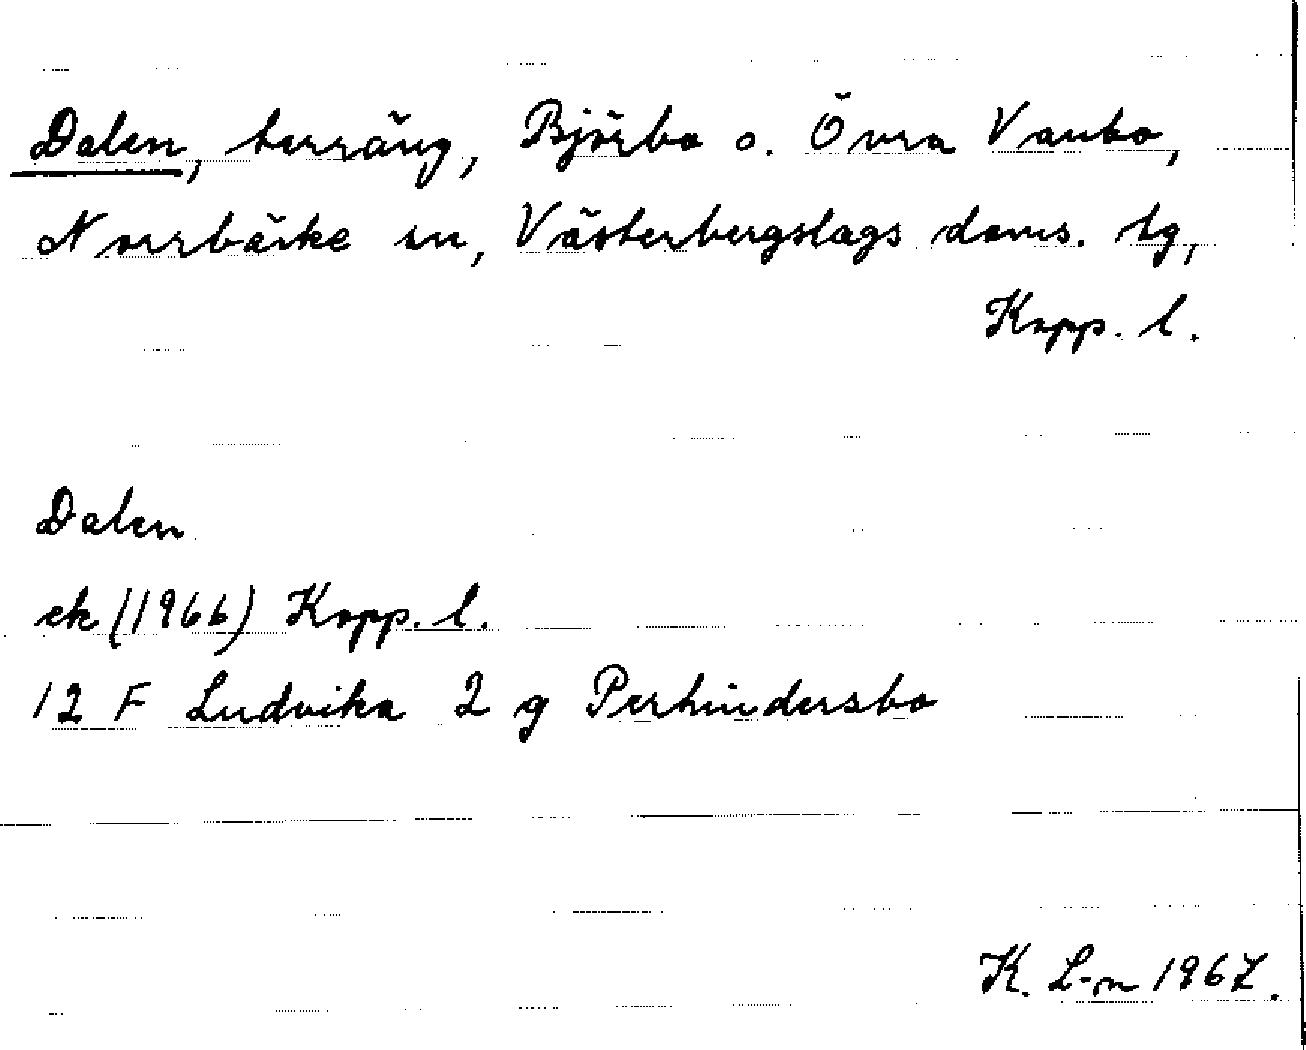 Dalen, terräng, Björbo o. Övra Vanbo,
Norrbärke sn, Västerbergslags doms. tg,
Kopp. l.
Dalen
ek (1966) Kopp. l.
12 F Ludvika 2 g Perhindersbo
K. L-m 1967.